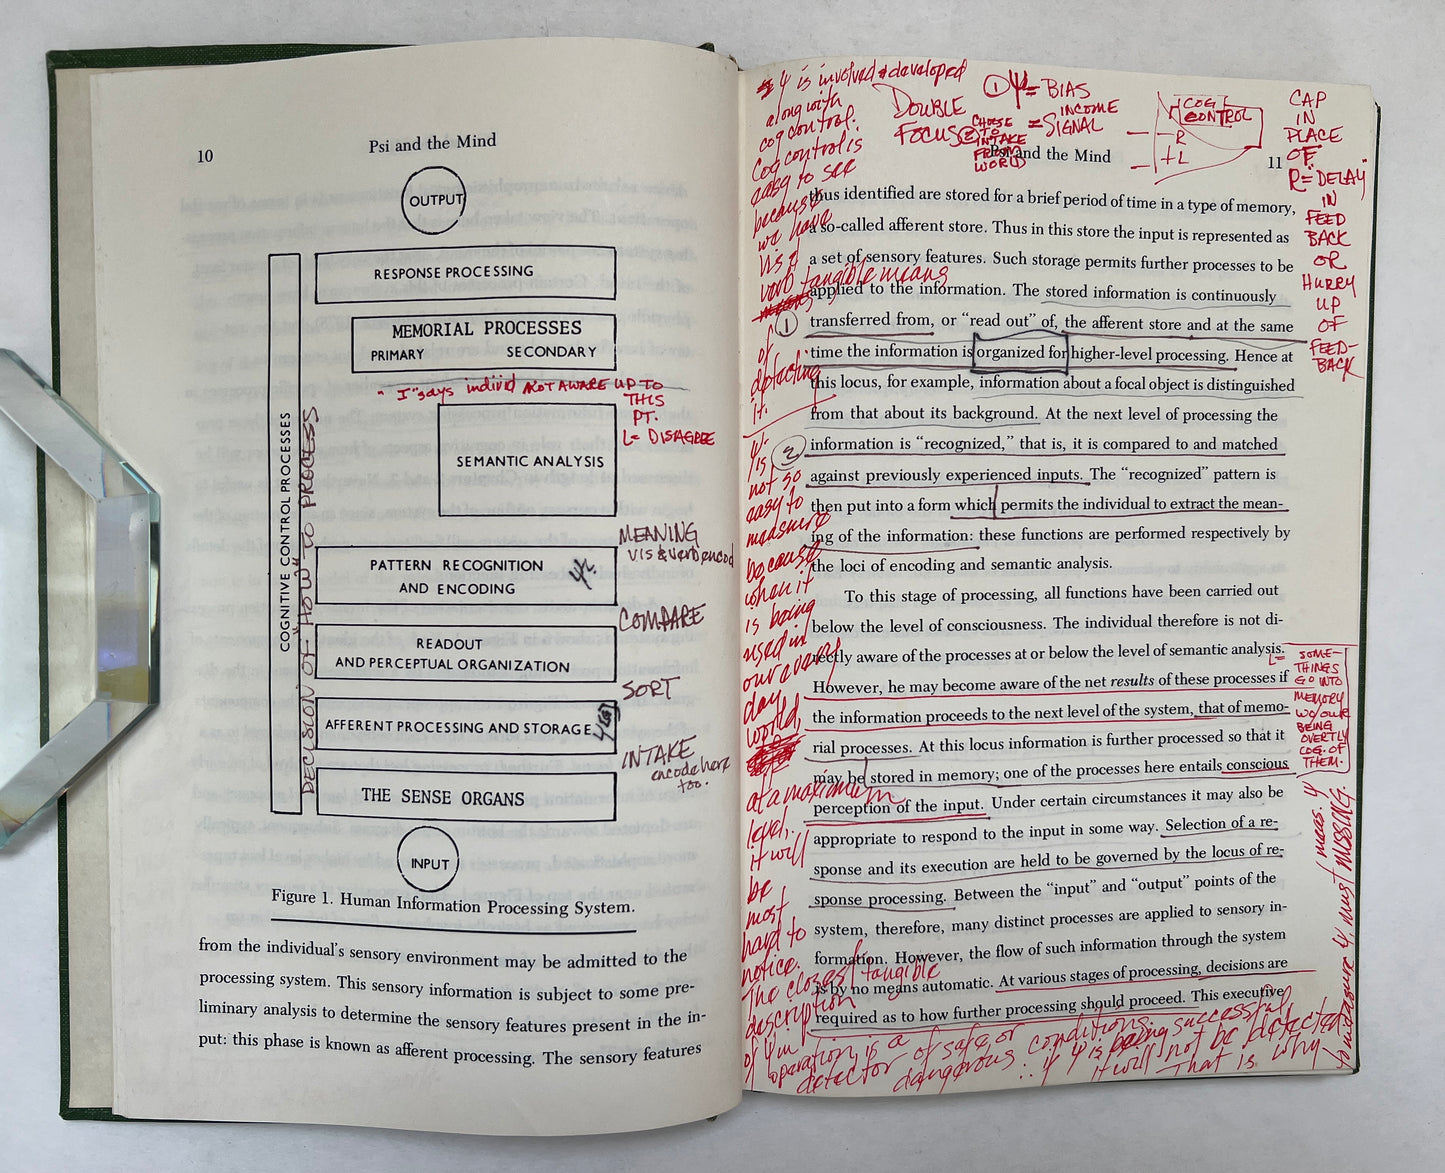 10
Psi and the Mind
OUTPUT
RESPONSE PROCESSING
MEMORIAL PROCESSES
PRIMARY SECONDARY
"I" says individ NOT AWARE UP TO
THIS
PT.
L= DISAGREE
SEMANTIC ANALYSIS
MEANING
VIS & verb encod
PATTERN RECOGNITION
AND ENCODING
COMPARE
READOUT
AND PERCEPTUAL ORGANIZATION
SORT
AFFERENT PROCESSING AND STORAGE
INTAKE
encode here
too.
THE SENSE ORGANS
INPUT
COGNITIVE CONTROL PROCESSES
DECISION OF "HOW" TO PROCESS
Figure 1. Human Information Processing System.
from the individual's sensory environment may be admitted to the
processing system. This sensory information is subject to some pre-
liminary analysis to determine the sensory features present in the in-
put: this phase is known as afferent processing. The sensory features
Ψ is involved & developed
along with
cog control.
Cog control is
easy to see
because
we have
vis &
verb tangible means
of
detecting
it.
Ψ
is
not so
easy to
measure
because
when it
is being
used in
our every
day
world,
at a maximum
level,
it will
be
most
hard to
notice.
The closest tangible
description
of Ψ in
operation is a
detector of safe or
dangerous conditions
∴ if Ψ is being successful
it will not be detected.
That is why
to measure Ψ, Ψ must meas. MISSING.
DOUBLE
FOCUS
① Ψ = BIAS
INCOME
= SIGNAL
② CHOOSE
TO
INTAKE
FROM
WORLD
COG
CONTROL
R
L
CAP
IN
PLACE
OF
R = "DELAY"
IN
FEED
BACK
OR
HURRY
UP
OF
FEED-
BACK
Psi and the Mind
11
thus identified are stored for a brief period of time in a type of memory,
a so-called afferent store. Thus in this store the input is represented as
a set of sensory features. Such storage permits further processes to be
applied to the information. The stored information is continuously
① transferred from, or "read out" of, the afferent store and at the same
time the information is organized for higher-level processing. Hence at
this locus, for example, information about a focal object is distinguished
from that about its background. At the next level of processing the
② information is "recognized," that is, it is compared to and matched
against previously experienced inputs. The "recognized" pattern is
then put into a form which permits the individual to extract the mean-
ing of the information: these functions are performed respectively by
the loci of encoding and semantic analysis.
To this stage of processing, all functions have been carried out
below the level of consciousness. The individual therefore is not di-
rectly aware of the processes at or below the level of semantic analysis.
However, he may become aware of the net results of these processes if
the information proceeds to the next level of the system, that of memo-
rial processes. At this locus information is further processed so that it
may be stored in memory; one of the processes here entails conscious
perception of the input. Under certain circumstances it may also be
appropriate to respond to the input in some way. Selection of a re-
sponse and its execution are held to be governed by the locus of re-
sponse processing. Between the "input" and "output" points of the
system, therefore, many distinct processes are applied to sensory in-
formation. However, the flow of such information through the system
is by no means automatic. At various stages of processing, decisions are
required as to how further processing should proceed. This executive
L=
SOME-
THINGS
GO INTO
MEMORY
w/our
BEING
OVERTLY
COG. OF
THEM.